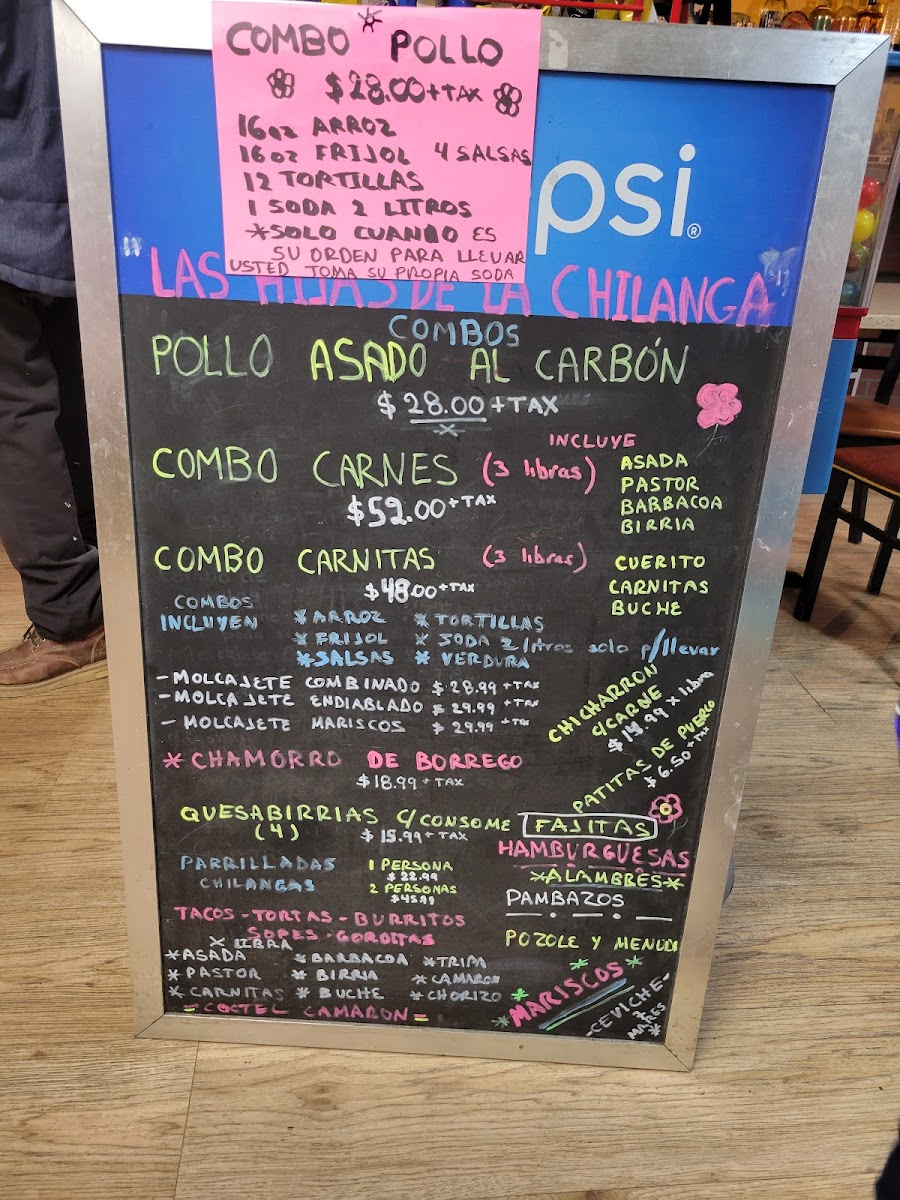 COMBO POLLO
$28.00 + TAX
16oz ARROZ
16oz FRIJOL 4 SALSAS
12 TORTILLAS
1 SODA 2 LITROS
*SOLO CUANDO ES
SU ORDEN PARA LLEVAR
USTED TOMA SU PROPIA SODA
psi®
"LAS HIJAS DE LA CHILANGA"
COMBOS
POLLO ASADO AL CARBÓN
$28.00 + TAX
COMBO CARNES (3 libras)
$52.00 + TAX
INCLUYE
ASADA
PASTOR
BARBACOA
BIRRIA
COMBO CARNITAS (3 libras)
$48.00 + TAX
CUERITO
CARNITAS
BUCHE
COMBOS
INCLUYEN
* ARROZ * TORTILLAS
* FRIJOL * SODA 2 litros solo p/llevar
* SALSAS * VERDURA
- MOLCAJETE COMBINADO $28.99 + TAX
- MOLCAJETE ENDIABLADO $29.99 + TAX
- MOLCAJETE MARISCOS $29.99 + TAX
CHICHARRON
C/CARNE
$14.99 x libra
PATITAS DE PUERCO
$6.50 + TAX
* CHAMORRO DE BORREGO
$18.99 + TAX
QUESABIRRIAS C/CONSOME
(4) $15.99 + TAX
FAJITAS
HAMBURGUESAS
*ALAMBRES*
PAMBAZOS
POZOLE Y MENUDO
PARRILLADAS
CHILANGAS
1 PERSONA
$22.99
2 PERSONAS
$45.99
TACOS - TORTAS - BURRITOS
SOPES - GORDITAS
X LIBRA
* ASADA * BARBACOA * TRIPA
* PASTOR * BIRRIA * CAMARON
* CARNITAS * BUCHE * CHORIZO
= COCTEL CAMARON =
* MARISCOS *
- CEVICHE -